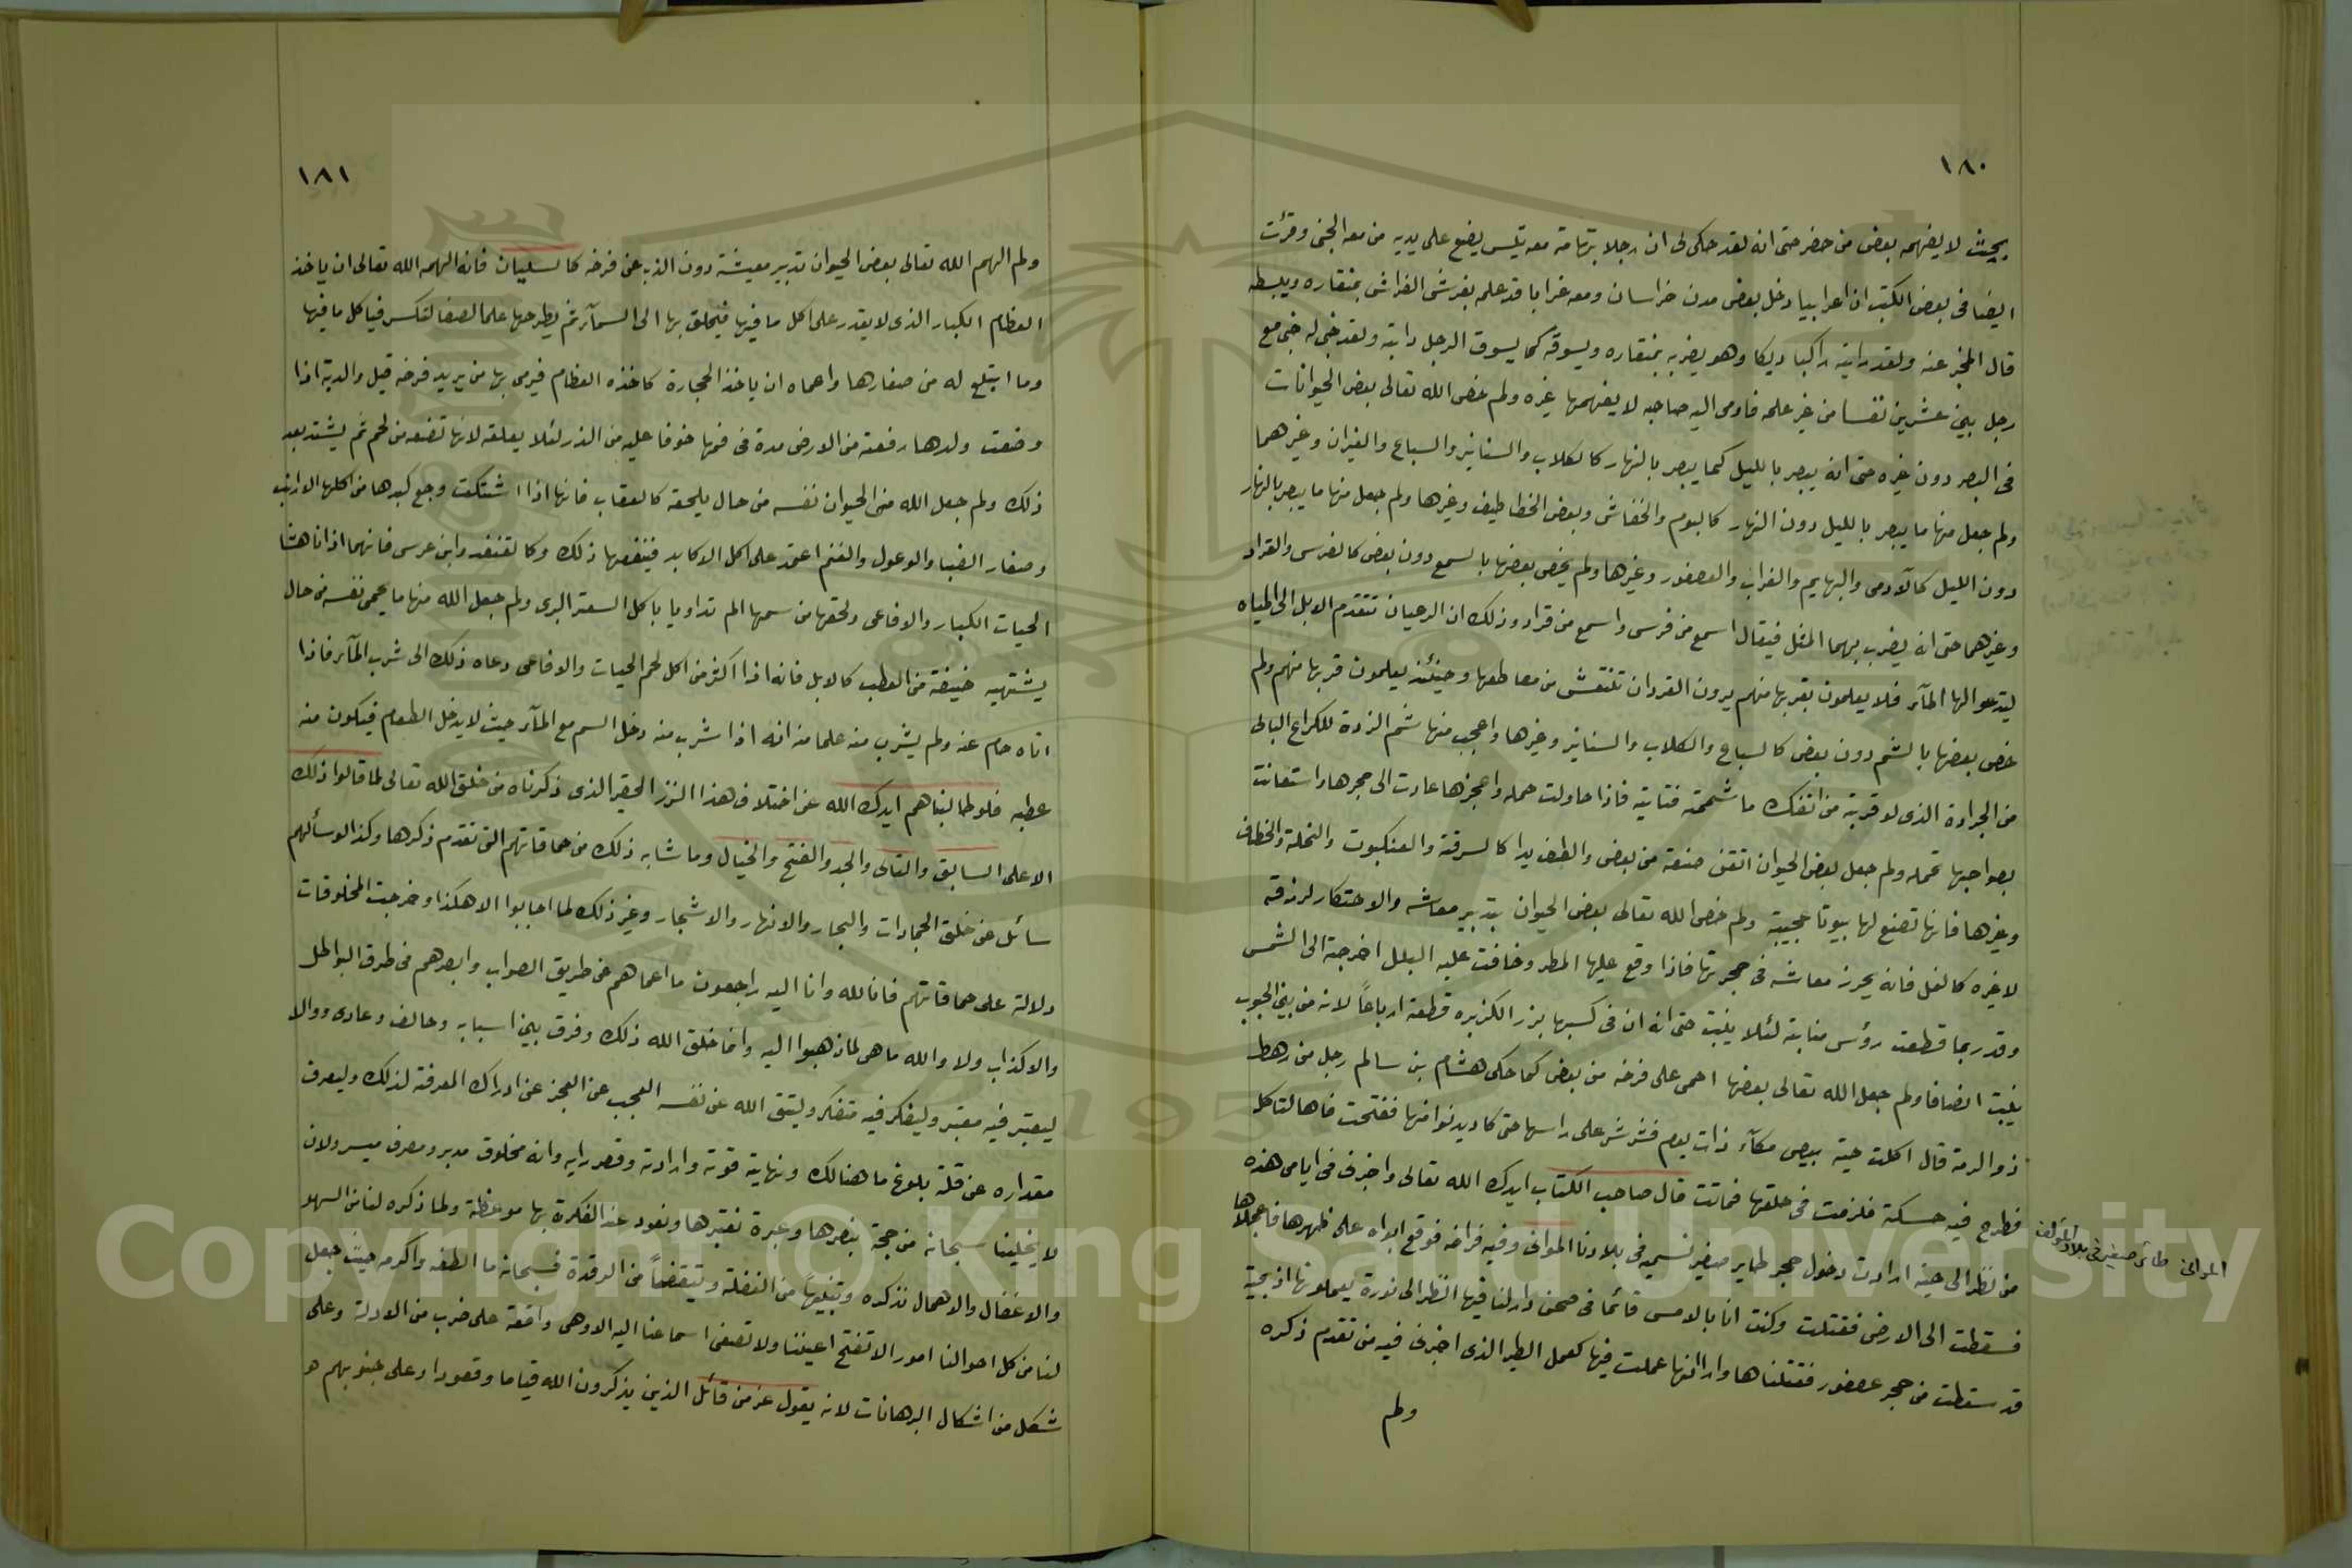 ١٨٠
بحيث لا يفهمه بعض من حضر حتى انه لقد حكى لى ان رجلا بتهامة معه تيس يضع على يديه من معه الجنى وقرئت
ايضا فى بعض الكتب ان اعرابيا دخل بعض مدن خراسان ومعه غرابا قد علمه بفرش الفراش بمنقاره ويبسطه
قال المخبر عنه ولقد رايته راكبا ديكا وهو يضربه بمنقاره ويسوقه كما يسوق الرجل دابته ولقد خبى له خبى مع
رجل بين عشرين نفسا من غير علمه فاومى اليه صاحبه لا يفهمها غيره ولم خص الله تعالى بعض الحيوانات
فى البصر دون غيره حتى انه يبصر بالليل كما يبصر بالنهار كالكلاب والسنانير والسباع والفيران وغيرهما
ولم جعل منها ما يبصر بالليل دون النهار كالبوم والخفاش وبعض الخطاطيف وغيرها ولم جعل منها ما يبصر بالنهار
دون الليل كالآدمى والبهايم والغراب والعصفور وغيرها ولم يخص بعضها بالسمع دون بعض كالفرس والقراد
وغيرهما حتى انه يضرب بهما المثل فيقال اسمع من فرس واسمع من قراد وذلك ان الرعيان تتقدم الابل الى المياه
ليدعوا لها المآء فلا يعلمون بقربها منهم يرون القردان تنتعش من معاطنها وحينئذ يعلمون قربها منهم ولم
خص بعضها بالشم دون بعض كالسباع والكلاب والسنانير وغيرها واعجب منها شم الزدة للكراع البالى
من الجرادة الذى لو قربته من انفك ما شممته فتاتيه فاذا حاولت حمله واعجزها عادت الى حجرها واستعانت
بصواحبها تحمله ولم جعل بعض الحيوان اتقن صنعة من بعض والطف يدا كالسرفة والعنكبوت والنحلة والخطاف
وغيرها فانها تصنع لها بيوتا عجيبة ولم خص الله تعالى بعض الحيوان بتدبير معاشه والاحتكار لرزقه
لا غيره كالنمل فانه يحرز معاشه فى حجرتها فاذا وقع عليها المطر وخافت عليه البلل اخرجته الى الشمس
وقد ربما قطعت رؤس منابته لئلا ينبت حتى انه ان فى كسبها بزر الكزبره قطعته ارباعاً لانه من بين الحبوب
ينبت انصافا ولم جعل الله تعالى بعضها احمى على فرخه من بعض كما حكى هشام بن سالم رجل من رهط
ذو الرمة قال اكلت حية بيض مكآء ذات يوم فشرشر على راسها حتى كاد يدنوا منها ففتحت فاها لتاكله
فطرح فيه حسكة فلزمت فى حلقها فماتت قال صاحب الكتاب ايدك الله تعالى واخبرنى فى ايامى هذه
من نظر الى حية ارادت دخول حجر طاير صغير نسميه فى بلادنا الموانى وفيه فراخه فوقع ابواه على ظهرها فاعجلاها
فسقطت الى الارض فقتلت وكنت انا بالامس قائما فى صحن دار لنا فيها انظر الى نورة يعملونها اذ بحية
قد سقطت من حجر عصفور فقتلناها وارا انها عملت فيها كعمل الطير الذى اخبرنى فيه من تقدم ذكره
ولم
الموانى طائر صغير فى بلاد المؤلف
١٨١
ولم الهم الله تعالى بعض الحيوان تدبير معيشة دون الذب عن فرخه كالسليان فانه الهمه الله تعالى ان ياخذ
العظام الكبار الذى لا يقدر على اكل ما فيها فيحلق بها الى السمآء ثم يطرحها على الصفا لتكسر فياكل ما فيها
وما ابتلع له من صغارها واعماه ان ياخذ الحجارة كاخذه العظام فيرمى بها من يريد فرخه قيل والدبة اذا
وضعت ولدها رفعته من الارض مدة فى فمها خوفا عليه من الذر لئلا يعلقه لانها تضعه من لحم ثم يشتد بعد
ذلك ولم جعل الله من الحيوان نفسه من حال يلحقه كالعقاب فانها اذا اشتكت وجع كبدها من اكلها الارانب
وصغار الضبا والوعول والغنم اعتمد على اكل الاكابد فينفعها ذلك وكالقنفد وابن عرس فانهما اذا ناهشا
الحيات الكبار والافاعى ولحقها من سمها الم تداويا باكل السعتر البرى ولم جعل الله منها ما يحمى نفسه من حال
يشتهيه خيفة من العطب كالابل فانه اذا اكثر من اكل لحم الحيات والافاعى دعاه ذلك الى شرب المآء فاذا
اتاه حام عنه ولم يشرب منه علما منه انه اذا شرب منه دخل السم مع المآء حيث لا يدخل الطعام فيكون منه
عطبه فلو طالبناهم ايدك الله عن اختلاف هذا النزر الحقير الذى ذكرناه من خلق الله تعالى لما قالوا ذلك
الا على السابق والتالى والجد والفتح والخيال وما شابه ذلك من حماقاتهم التى تقدم ذكرها وكذا لو سألهم
سائل عن خلق الجمادات والبحار والانهار والاشجار وغير ذلك لما اجابوا الا هكذا وخرجت المخلوقات
دلالة على حماقاتهم فانا لله وانا اليه راجعون ما اعماهم عن طريق الصواب وابصرهم فى طرق البواطل
والاكذاب ولا والله ما هى لما ذهبوا اليه وانما خلق الله ذلك وفرق بين اسبابه وحالف وعادى ووالا
ليعتبر فيه معتبر وليفكر فيه متفكر ولينق الله عن نفسه العجب عن العجز عن ادراك المعرفة لذلك وليعرف
مقداره عن قلة بلوغ ما هنالك ونهاية قوته وارادته وقصر رايه وانه مخلوق مدبر ومصرف ميسر ولان
لا يخلينا سبحانه من حجة ينصرها وعبرة نعتبرها ونعود عند الفكرة بها موعظة ولما ذكره لنا من السهو
والاغفال والاهمال تذكره وتنبيهاً من الغفلة وتيقضاً من الرقدة فسبحانه ما الطفه واكرمه حيث جعل
لنا من كل احوالنا امور الا تفتح اعيننا ولا تصغى اسماعنا اليه الا وهى واقعة على ضرب من الادلة وعلى
شكل من اشكال البرهانات لانه يقول عز من قائل الذين يذكرون الله قياما وقعودا وعلى جنوبهم هو
Copyright © King Saud University